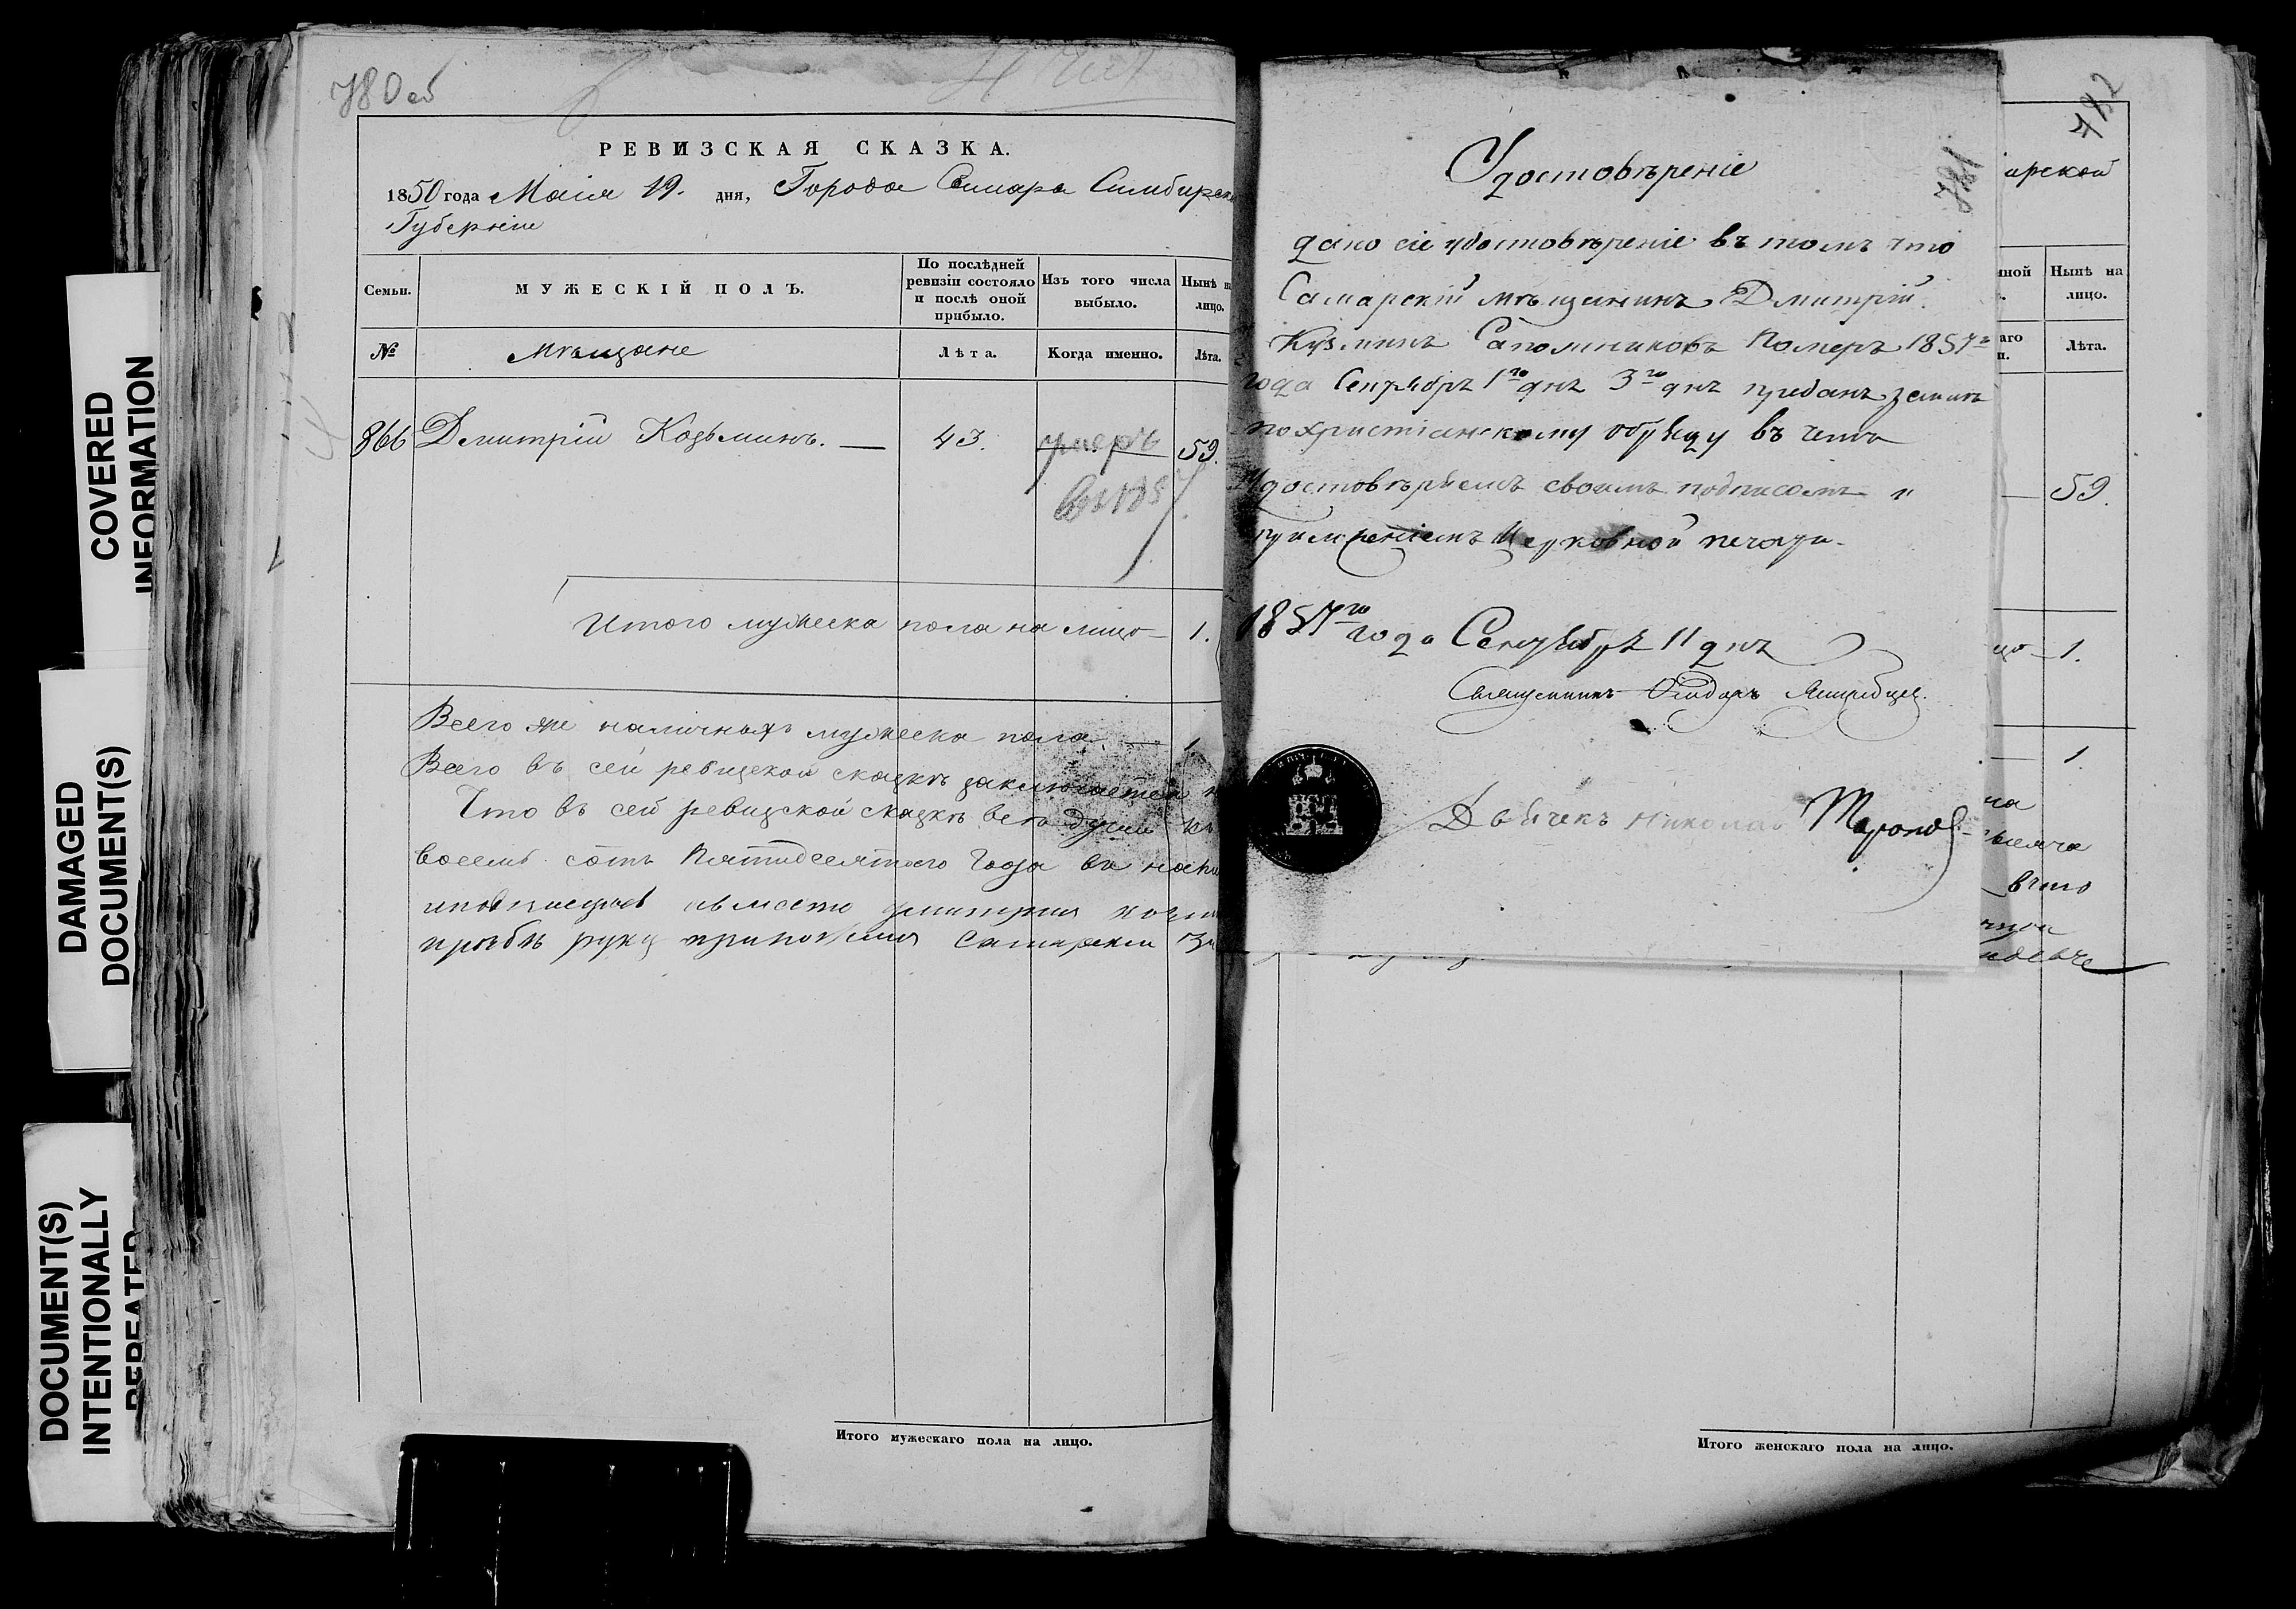 COVERED
INFORMATION
DAMAGED
DOCUMENT(S)
DOCUMENT(S)
INTENTIONALLY
REPEATED
780 об
РЕВИЗСКАЯ СКАЗКА.
1850 года Маія 19. дня, Города Самара Симбирско
Губерніи
Семьи.
МУЖЕСКІЙ ПОЛЪ.
По послѣдней
ревизіи состояло
и послѣ оной
прибыло.
Изъ того числа
выбыло.
Нынѣ н
лицо.
№
Мѣщане
Лѣта.
Когда именно.
Лѣта.
866 Дмитрій Козьминъ. — 43. умеръ 59.
1857
Итого мужеска пола на лицо — 1.
Всего же наличныхъ мужеска пола — 1
Всего въ сей ревизской сказкѣ заключается
Что въ сей ревизской сказкѣ всѣ души
восемь сотъ Пятидесятого Года
вместо дмитрия
прозбѣ руку приложилъ Самарски
Итого мужескаго пола на лицо.
781
Удостовѣреніе
дано сіе удостовѣреніе въ томъ что
Самарскій мѣщанинъ Дмитрій
Кузминъ Сапожниковъ Померъ 1857го
года Сентября 1го дня 3го дня преданъ земли
по христіанскому обряду въ чемъ
Удостовѣряемъ своимъ подписомъ и
Церковной печати.
1857го года Сентября 11 дня
Священникъ
Дьячекъ Николай
782
ирской
нной
Нынѣ на
лицо.
аго
Лѣта.
— 59.
1.
— 1.
Итого женскаго пола на лицо.